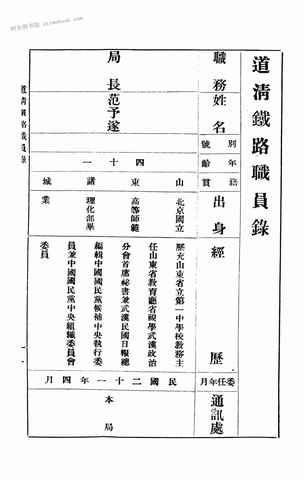 道清鐵路職員錄
職務 姓名 別號 年齡 籍貫 出身 經歷 委任年月 通訊處
局長 范予遂
四十一
山東諸城
北京國立
高等師範
理化部畢
業
歷充山東省立第一中學校教務主
任山東省教育廳省視學武漢政治
分會首席祕書兼武漢民國日報總
編輯中國國民黨候補中央執行委
員兼中國國民黨中央組織委員會
委員
民國二十一年四月
本局
道清鐵路職員錄
一